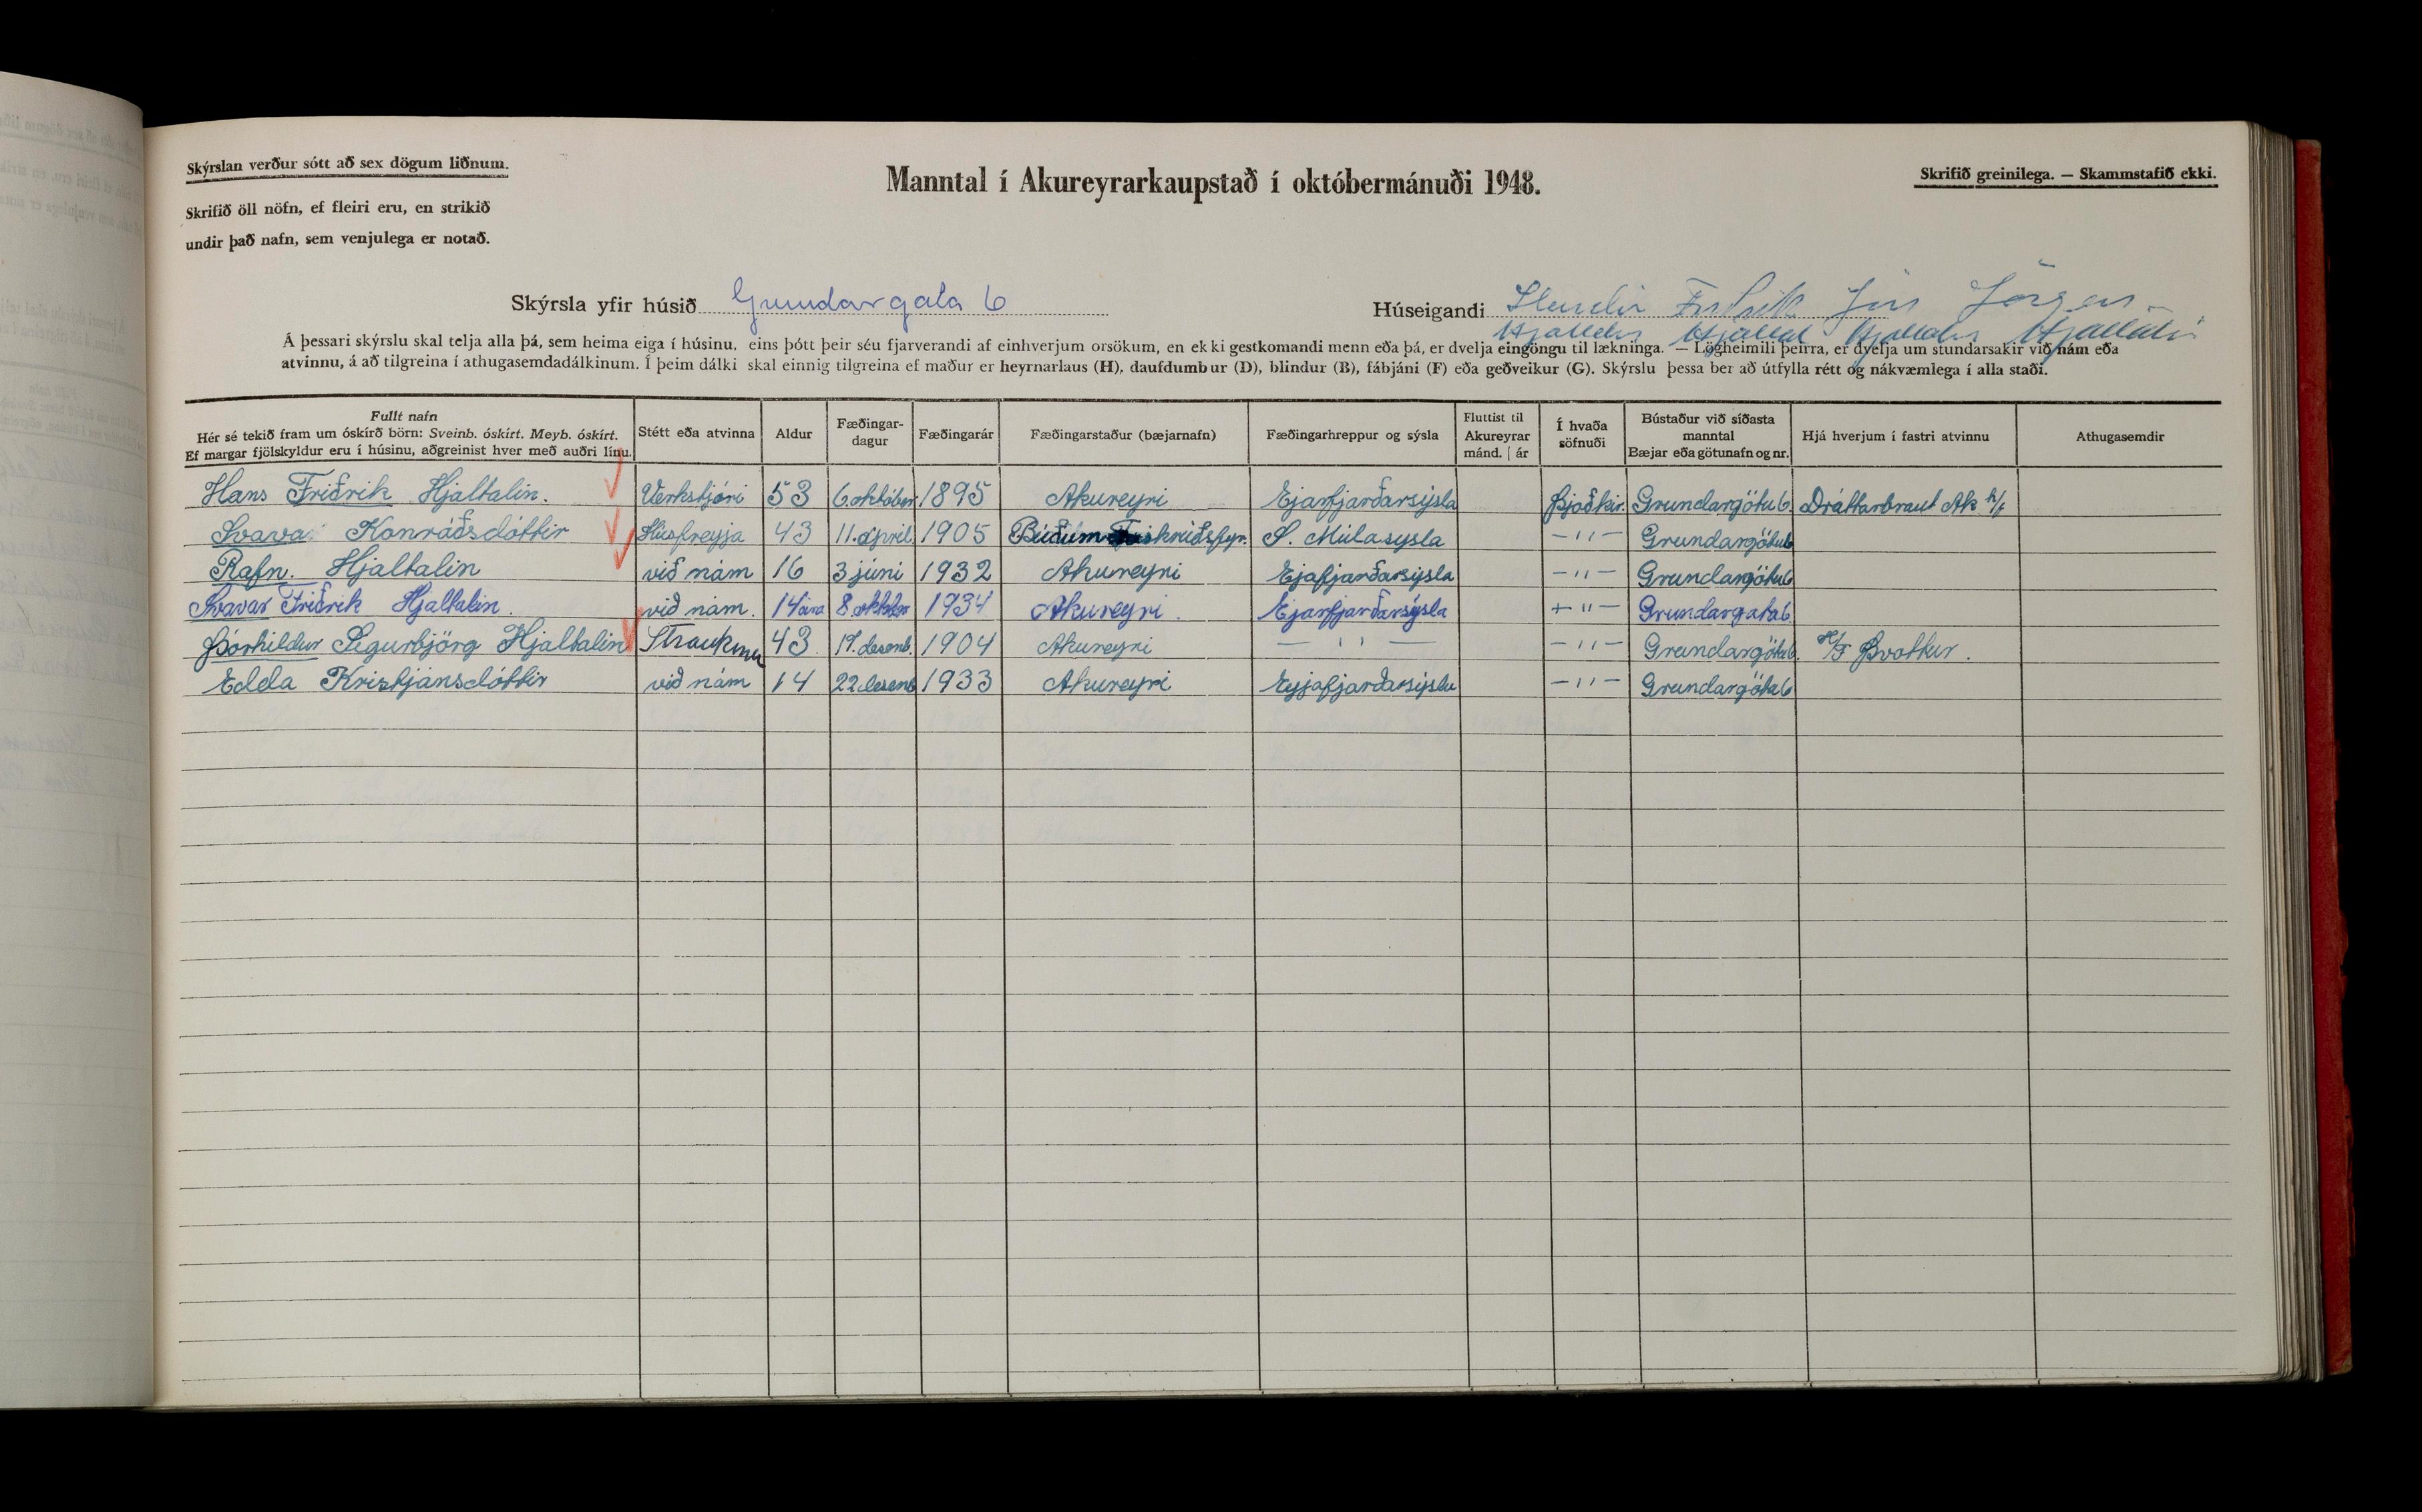 Skýrslan verður sótt að sex dögum liðnum.
Skrifið öll nöfn, ef fleiri eru, en strikið
undir það nafn, sem venjulega er notað.
Manntal í Akureyrarkaupstað í októbermánuði 1948.
Skrifið greinilega. — Skammstafið ekki.
Skýrsla yfir húsið Grundargata 6
Húseigandi Friðrik Jón Jörgen
Hjaltalín Hjaltal Hjaltalín Hjaltalín
Á þessari skýrslu skal telja alla þá, sem heima eiga í húsinu, eins þótt þeir séu fjarverandi af einhverjum orsökum, en ekki gestkomandi menn eða þá, er dvelja eingöngu til lækninga. — Lögheimili þeirra, er dvelja um stundarsakir við nám eða
atvinnu, á að tilgreina í athugasemdadálkinum. Í þeim dálki skal einnig tilgreina ef maður er heyrnarlaus (H), daufdumbur (D), blindur (B), fábjáni (F) eða geðveikur (G). Skýrslu þessa ber að útfylla rétt og nákvæmlega í alla staði.
Fullt nafn Hér sé tekið fram um óskírð börn: Sveinb. óskírt. Meyb. óskírt. Ef margar fjölskyldur eru í húsinu, aðgreinist hver með auðri línu. Stétt eða atvinna Aldur Fæðingar-dagur Fæðingarár Fæðingarstaður (bæjarnafn) Fæðingarhreppur og sýsla Fluttist til Akureyrar mánd. | ár Í hvaða söfnuði Bústaður við síðasta manntal Bæjar eða götunafn og nr. Hjá hverjum í fastri atvinnu Athugasemdir
Hans Friðrik Hjaltalín. Verkstjóri 53 6. október 1895 Akureyri Ejarfjarðarsýsla Þjóðkir. Grundargötu 6. Dráttarbraut Ak h/f
Svava Konráðsdóttir Húsfreyja 43 11. apríl 1905 Búðum Fáskrúðsfyr. S. Múlasysla —〃— Grundargötu 6
Rafn. Hjaltalín við nám 16 3 júní 1932 Akureyri Ejafjarðarsýsla —〃— Grundargötu 6
Svavar Friðrik Hjaltalín. við nám. 14 ára 8. október 1934 Akureyri. Ejarfjarðarsýsla —〃— Grundargata 6
Þórhildur Sigurbjörg Hjaltalín 43. 17. desemb. 1904 Akureyri —〃— —〃— Grundargötu 6. H/F Þvottur.
Edda Kristjánsdóttir við nám 14 22. desemb 1933 Akureyri Eyjafjarðarsýslu —〃— Grundargötu 6